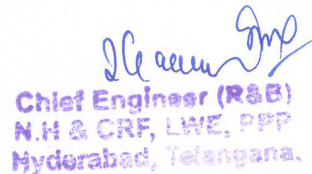 Chief Engineer (R&B)
N.H & CRF, LWE, PPP
Hyderabad, Telangana.